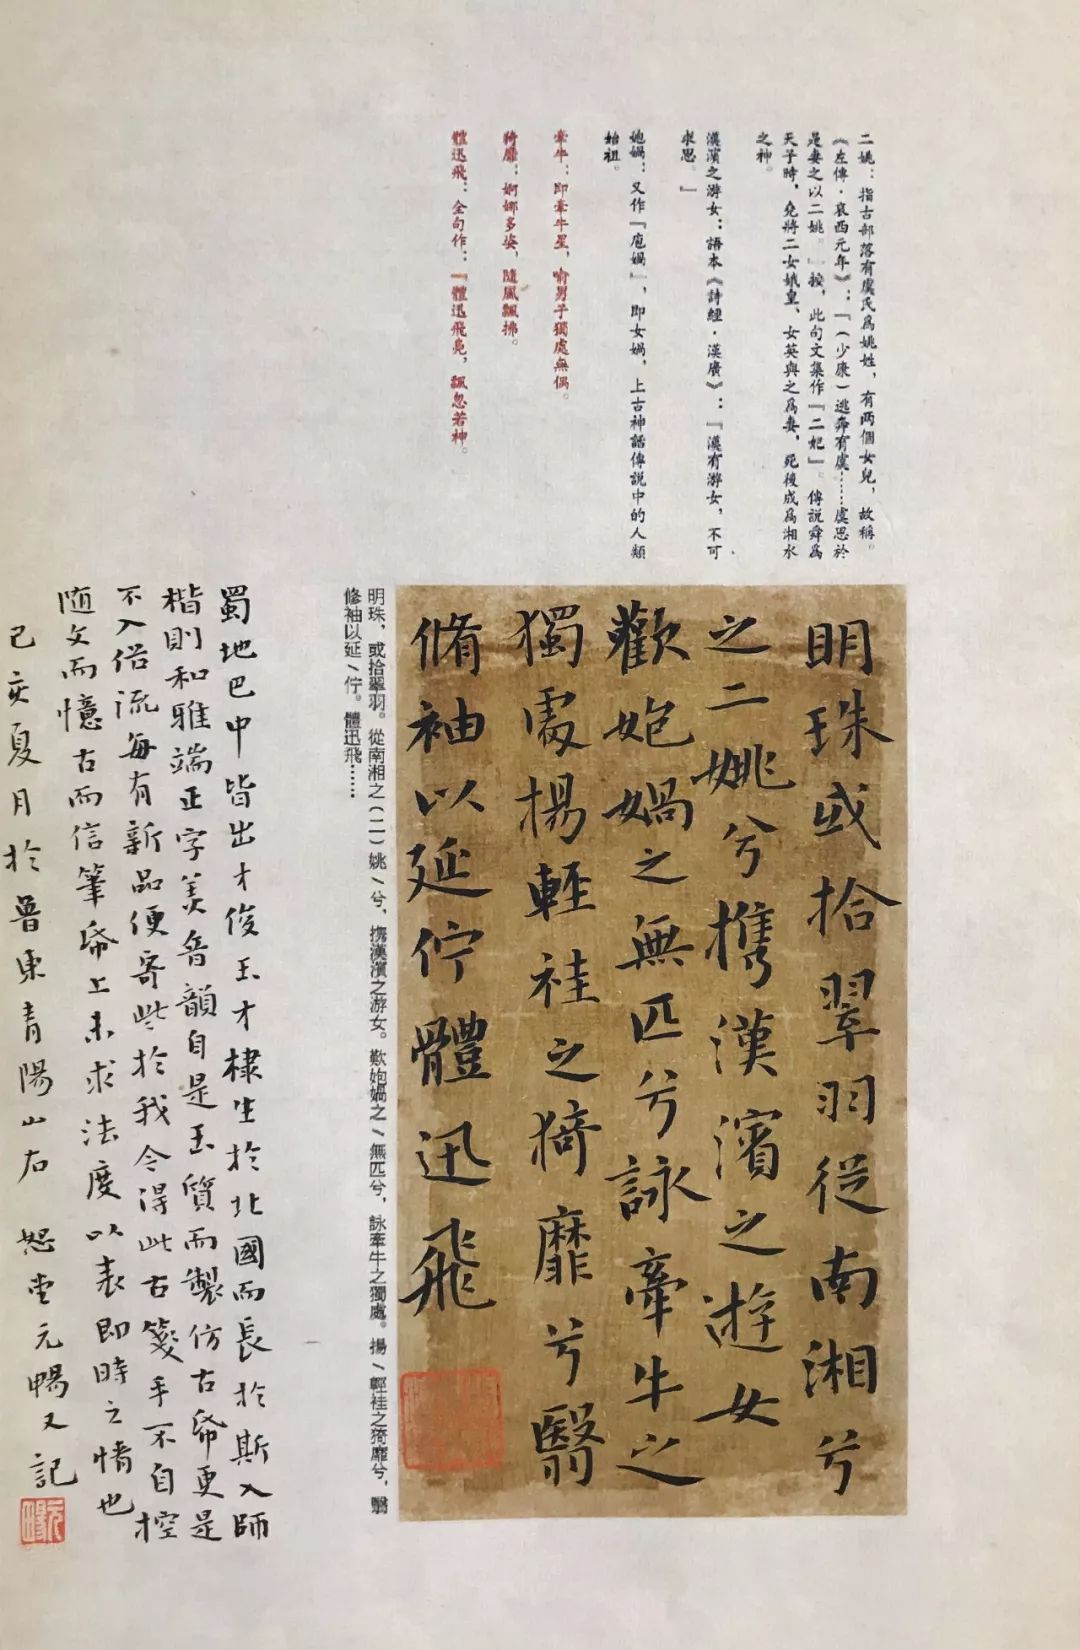 二姚：指古部落有虞氏爲姚姓，有两個女兒，故稱。
《左傳·哀西元年》：『（少康）逃奔有虞……虞思於
是妻之以二姚。』按，此句文集作『二妃』。傳説舜爲
天子時，堯將二女娥皇、女英與之爲妻，死後成爲湘水
之神。
漢濱之游女：語本《詩經·漢廣》：『漢有游女，不可
求思。』
媿媧：又作『庖媧』，即女媧，上古神話傳説中的人類
始祖。
牽牛：即牽牛星，喻男子獨處無偶。
猗靡：婀娜多姿，隨風飄拂。
體迅飛：全句作：『體迅飛鳧，飄忽若神。
明珠或拾翠羽從南湘兮
之二姚兮攜漢濱之遊女
歡媿媧之無匹兮詠牽牛之
獨處楊輕袿之猗靡兮翳
脩袖以延佇體迅飛
明珠，或拾翠羽。從南湘之（二）姚/兮，撫漢濱之游女。歎媿媧之/無匹兮，詠牽牛之獨處。揚/輕袿之猗靡兮，翳
修袖以延/佇。體迅飛……
蜀地巴中皆出才俊玉才棣生於北國而長於斯入師
楷則和雅端正字美音韻自是玉質而製仿古帋更是
不入俗流每有新品便寄些於我令得此古箋手不自控
随文而憶古而信筆帋上未求法度以表即時之情也
己亥夏月於魯東青陽山右 恕堂元暢又記
元暢